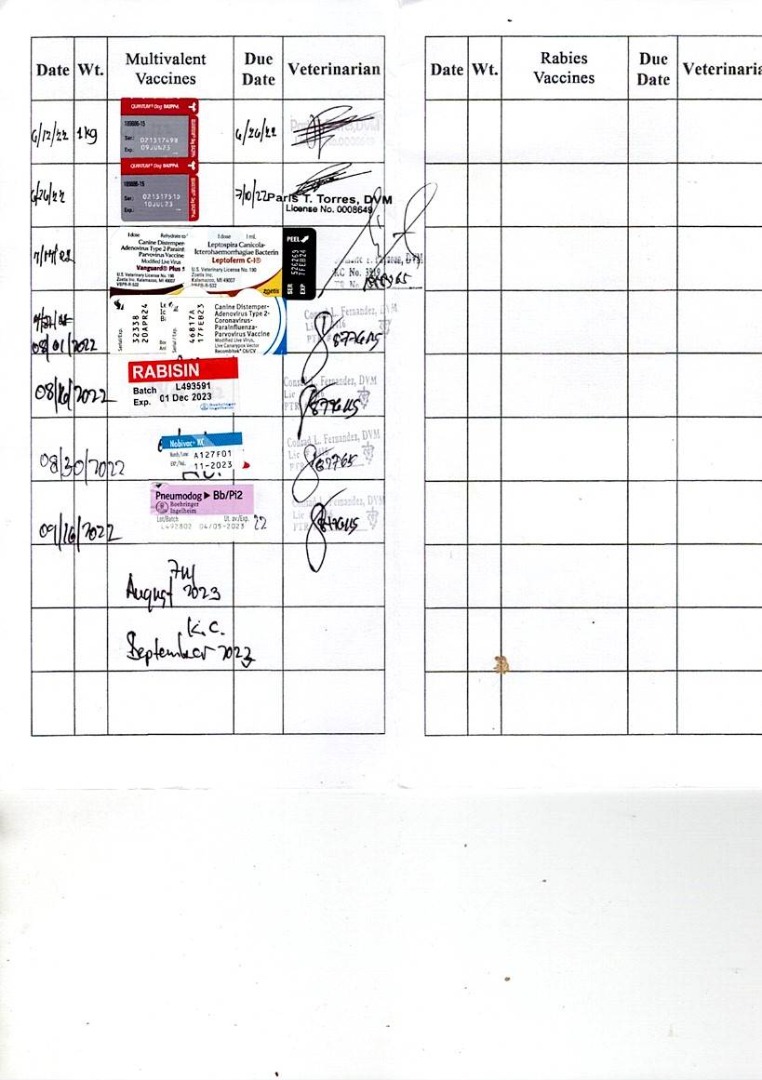 Date Wt. Multivalent Vaccines Due Date Veterinarian
Date Wt. Rabies Vaccines Due Date Veterinaria
6/12/22 1kg
QUANTUM® Dog DA2PPvL
Ser:
Exp.
6/26/22
6/26/22
QUANTUM® Dog DA2PPvL
Ser:
Exp. 10JUL23
7/10/22
Paris T. Torres, DVM
License No. 0008649
1 dose
Canine Distemper-
Adenovirus Type 2-Parainfl
Parvovirus Vaccine
Modified Live Virus
Vanguard® Plus 5
U.S. Veterinary License No. 190
Zoetis Inc.
Kalamazoo, MI 49007
1 dose 1 mL
Leptospira Canicola-
Icterohaemorrhagiae Bacterin
Leptoferm C-I®
U.S. Veterinary License No. 190
Zoetis Inc.
Kalamazoo, MI 49007
zoetis
PEEL
SER 526269
EXP 7FEB24
08/01/2022
Serial/Exp.
32338
20APR24
46817A
17FEB23
Canine Distemper-
Adenovirus Type 2-
Coronavirus-
Parainfluenza-
Parvovirus Vaccine
Modified Live Virus,
Live Canarypox Vector
Recombitek® C6/CV
Fernandez, DVM
08/16/2022
RABISIN
Batch L493591
Exp. 01 Dec 2023
Fernandez, DVM
08/30/2022
Nobivac® KC
A127F01
11-2023
Conrad L. Fernandez, DVM
09/16/2022
Pneumodog ▶ Bb/Pi2
Boehringer
Ingelheim
Lot/Batch
L492802 04/05-2023
22
Fernandez, DVM
7 in 1
August 2023
K.C.
September 2023